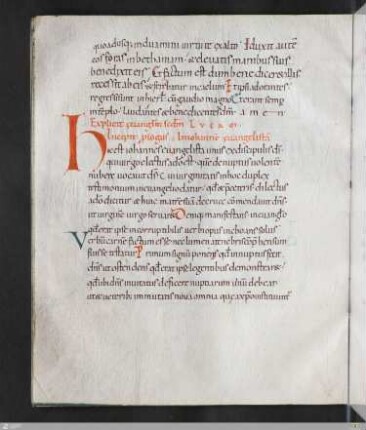 quoadusq; induamini uirtute ex alto. Eduxit autē
eos foras in bethaniam. & eleuatis manibus suis
benedixit eis. Et factum est dum benediceret illis
recessit ab eis & ferebatur in caelum. Et ipsi adorantes
regressi sunt in hierł. cū gaudio magno. & erant semp
in templo. laudantes & benedicentes dm̄. amen
Explicit euanglm̄ scdm̄ Lucan.
Incipit plogus. Iohannis euanglistę.
Hic est iohannes euangelista unus ex discipulis dī.
qui uirgo electus a dō est. quē de nuptiis uolente
nubere uocauit ds̄. Cui uirginitatis in hoc duplex
testimonium in euangelio datur. qđ & p̄ ceteris dilectus
a dō dicitur. & huic matrē suā de cruce cōmendauit dn̄s.
ut uirginē uirgo seruar&. Deniq; manifestans in euanglo
qđ erat ipse incorruptibilis uerbi opus inchoans solus
Verbū carnē factum esse. nec lumen a tenebris cōp̄hensum
fuisse testatur. Primum signū ponens qđ in nuptiis fecit
dn̄s. ut ostendens qđ erat ipse legentibus demonstrar&.
qđ ubi dn̄s inuitatus deficere nuptiarum uinū debeat.
ut & ueteribus inmutatis noua omnia quae a xpo instituunt